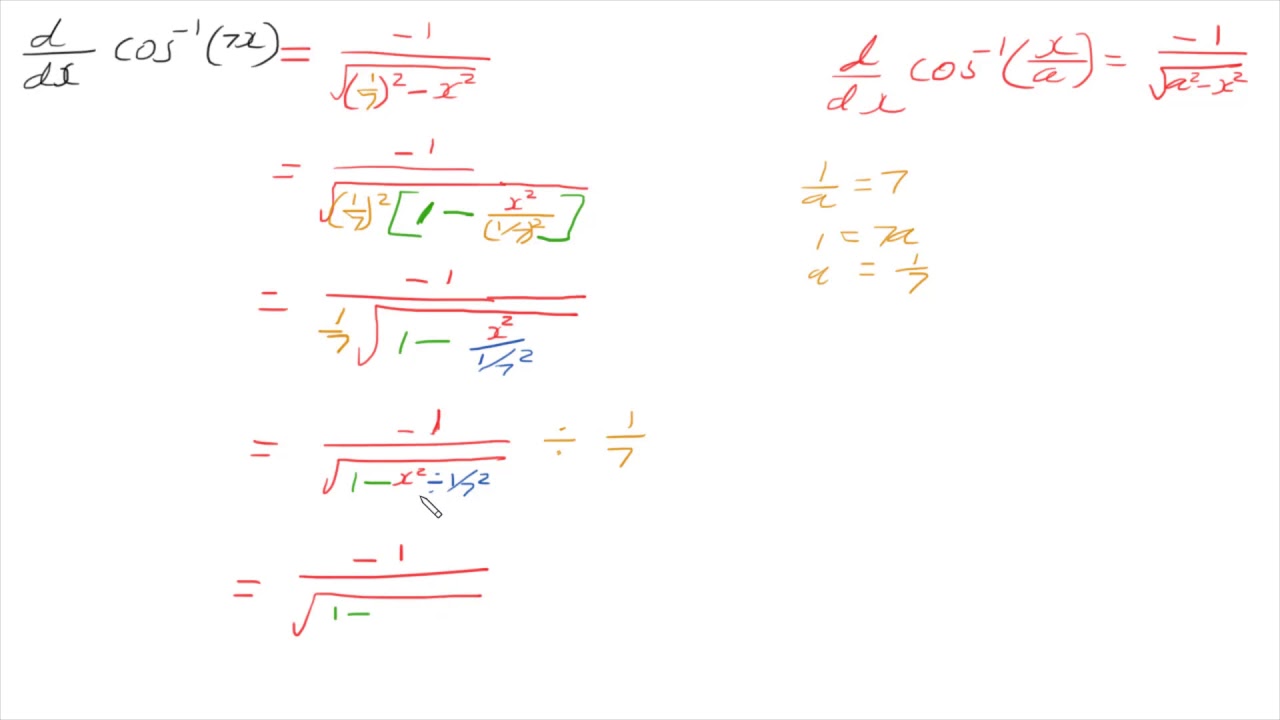 d/dx cos⁻¹(7x) = -1/√((1/7)² - x²)
d/dx cos⁻¹(x/a) = -1/√(a² - x²)
= -1/√((1/7)²[1 - x²/(1/7)²])
1/a = 7
1 = 7a
a = 1/7
= -1/(1/7 √(1 - x²/(1/7²)))
= -1/√(1 - x² ÷ 1/7²) ÷ 1/7
= -1/√(1 -